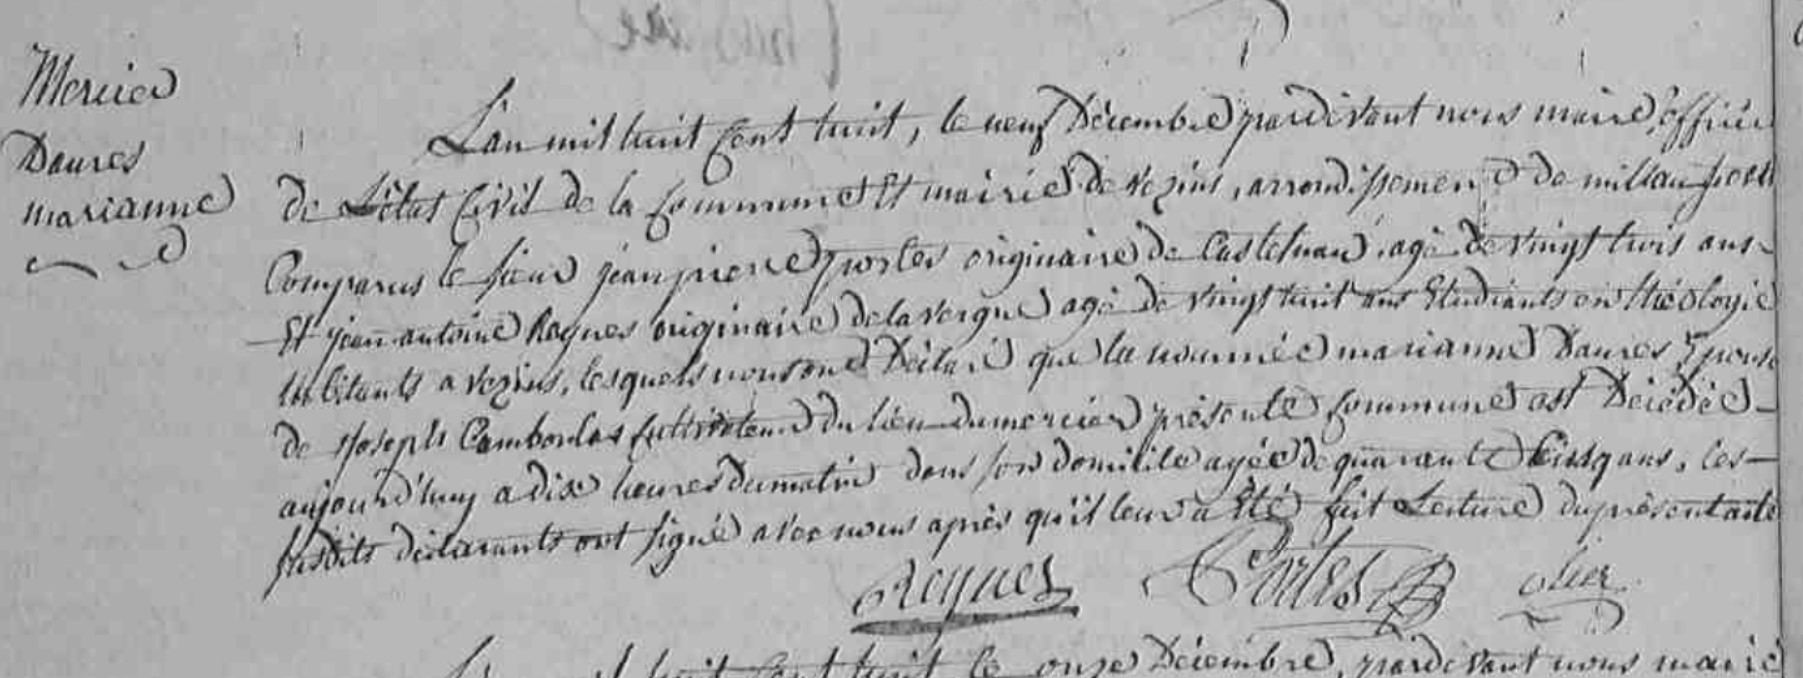 Mercier
Daures
marianne
L'an mil huit cent huit, le neuf Décembre pardevant nous maire, officier
de L'état Civil de la commune Et mairie de vezins, arrondissement de millau, sont
Comparus le sieur jean pierre portes originaire de Castelnau, agé de vingt trois ans
Et jean antoine Reynes originaire de lavergne agé de vingt huit ans Etudiants en théologie
habitants a vezins, lesquels nous ont Déclaré que la nommée marianne Daures Epouse
de joseph Camboulas cultivateur du lieu du mercier présente commune est Décédée
aujourd'huy a dix heures du matin dans son domicile agée de quarante Cinq ans, les
susdits déclarants ont signé avec nous après qu'il leur a Eté fait Lecture du présent acte
Reynes Portes
huit Cent huit le onze Décembre, pardevant nous maire